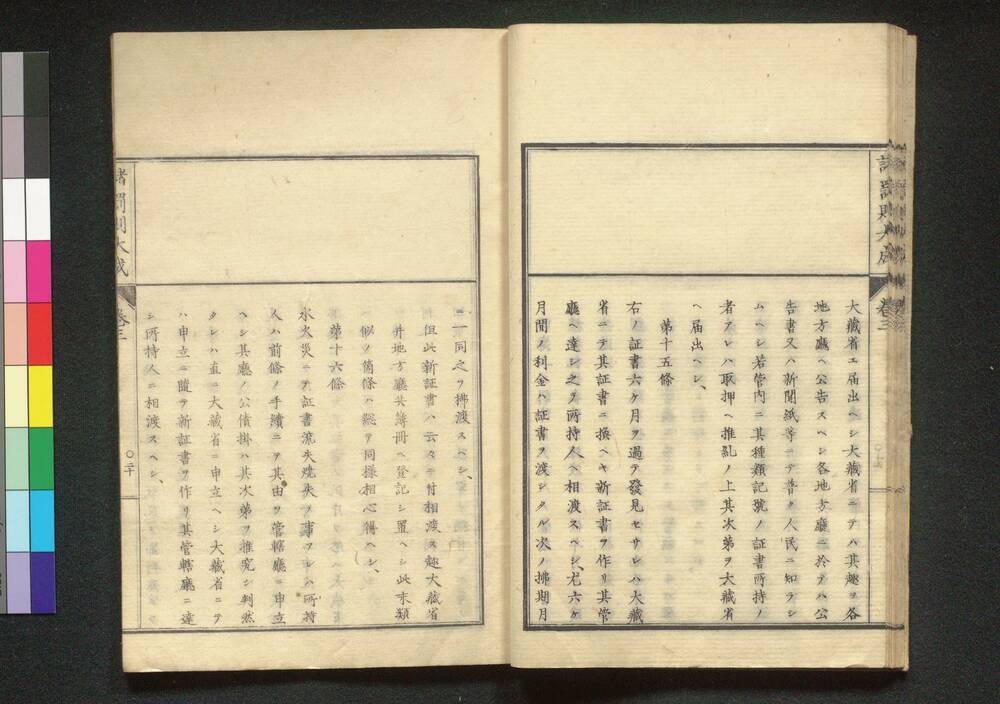 大藏省エ届出ヘシ大藏省ニテハ其趣ヲ各
地方廳ヘ公告スヘシ各地方廳ニ於テハ公
告書又ハ新聞紙等ニテ普ク人民ニ知ラシ
ムヘシ若管内ニ其種類記號ノ証書所持ノ
者アレハ取押ヘ推乱ノ上其次第ヲ大藏省
ヘ届出ヘシ、
第十五條
右ノ証書六ケ月ヲ過テ發見セサレハ大藏
省ニテ其証書ニ換ヘキ新証書ヲ作リ其管
廳ヘ達シ之ヲ所持人ヘ相渡スヘシ、尤六ケ
月間ノ利金ハ証書ヲ渡シタル次ノ拂期月
ニ一同之ヲ拂渡スヘシ、
但此新証書ハ云々ヲ付相渡ス趣大藏省
并地方廳共簿冊ヘ登記シ置ヘシ此味類
似ノ箇條ハ總テ同様相心得ヘシ、
第十六條
水火災ニテ証書流失燒失ノ事アレハ所持
人ハ前條ノ手續ニテ其由ヲ管轄廳ニ申立
ヘシ其廳ノ公債掛ハ其次第ヲ推究シ判然
タレハ直ニ大藏省ニ申立ヘシ大藏省ニテ
ハ申立ニ隨テ新証書ヲ作リ其管轄廳ニ達
シ所持人ニ相渡スヘシ、
諸罰則大成
卷三
〇二十